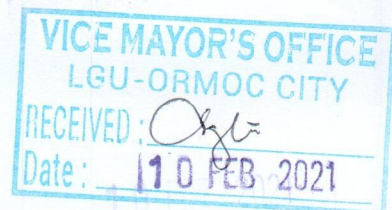 VICE MAYOR'S OFFICE
LGU-ORMOC CITY
RECEIVED :
Date : 10 FEB 2021